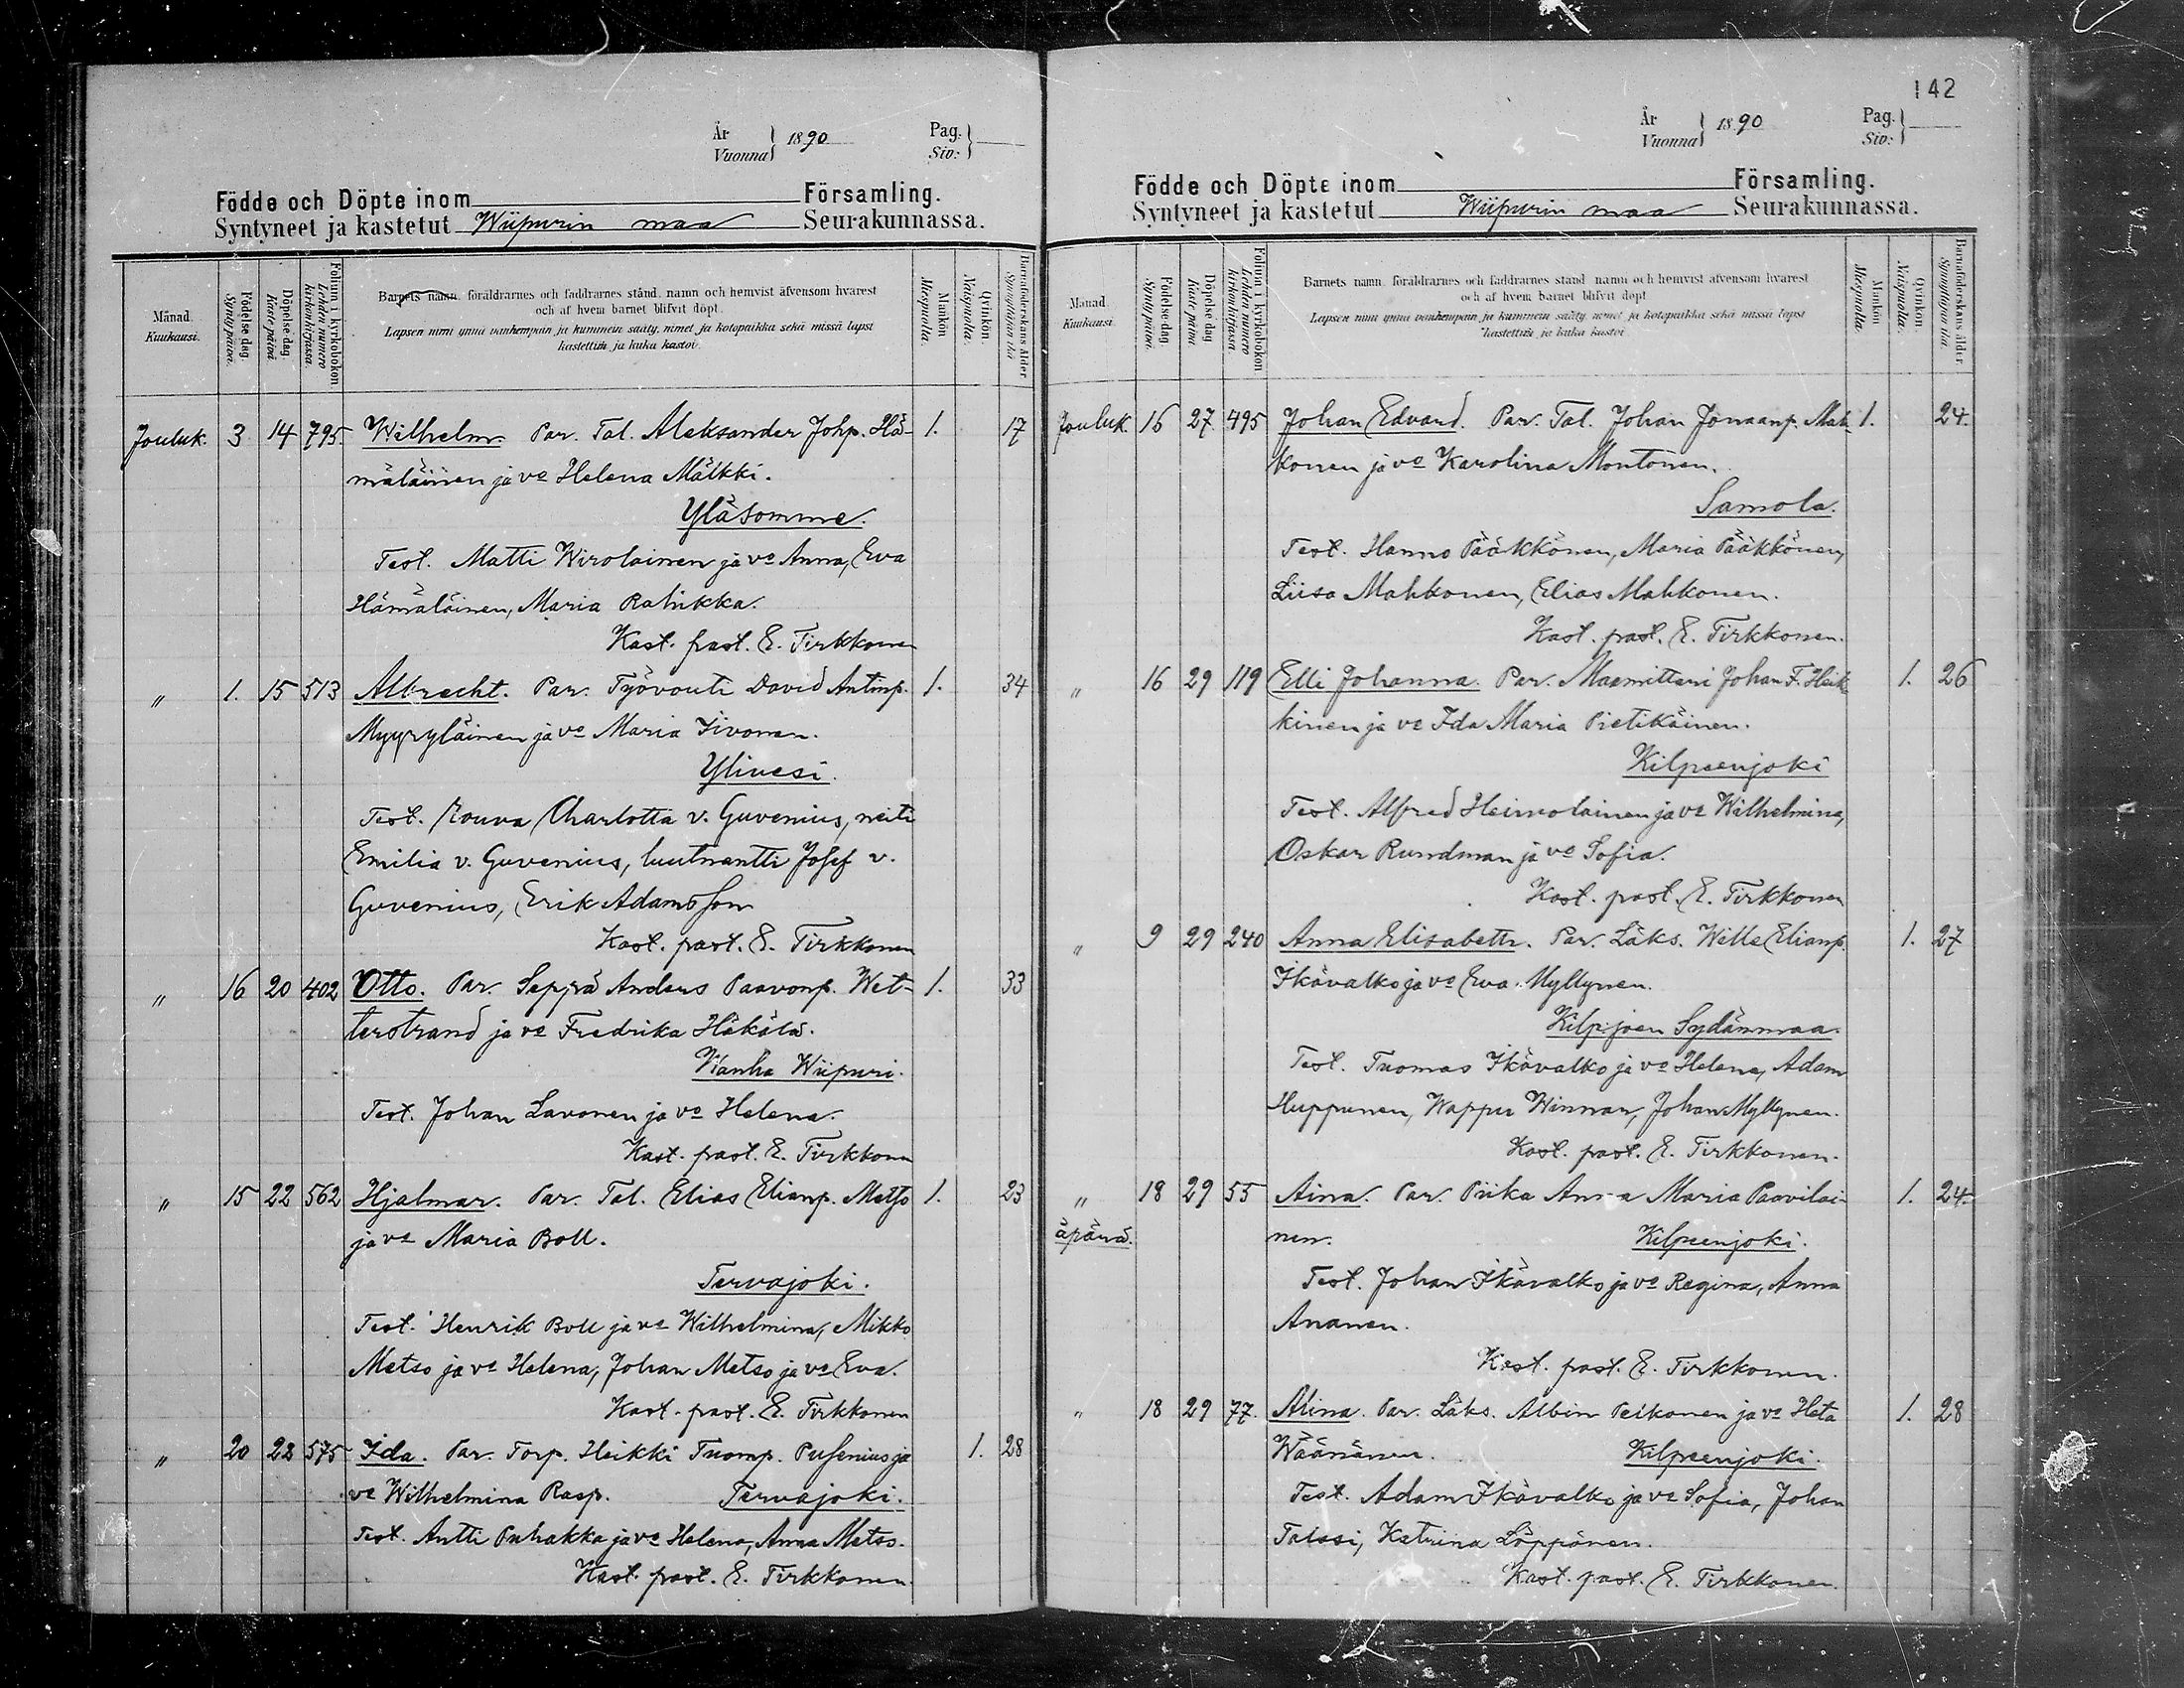 År
Vuonna } 1890 Pag.
Siv: }
Födde och Döpte inom Församling.
Syntyneet ja kastetut Wiipurin maa Seurakunnassa.
Månad.
Kuukausi.
Födelse dag.
Synty päivä.
Döpelse dag.
Kaste päivä.
Folium i kyrkoboken
Lehden numero
kirkonkirjassa.
Barnets namn, föräldrarnes och faddrarnes stånd, namn och hemvist äfvensom hvarest
och af hvem barnet blifvit döpt.
Lapsen nimi ynnä vanhempain ja kummein sääty, nimet ja kotopaikka sekä missä lapsi
kastettiin ja kuka kastoi.
Mankön.
Miespuolia.
Qvinkön.
Naispuolia.
Barnaföderskans ålder.
Synnyttäjän ikä.
Jouluk. 3 14 795. Wilhelm. Par. Tal. Aleksander Johp. Hä- 1. 17
mäläinen ja vo Helena Mälkki.
Yläsomme.
Test. Matti Wirolainen ja vo Anna, Eva
Hämäläinen, Maria Rahikka.
Kast. past. E. Tirkkonen
" 1. 15 513 Albrecht. Par. Työvouti David Antinp. 1. 34
Myyryläinen ja vo Maria Iivonen.
Ylivesi.
Test. Rouva Charlotta v. Guvenius, neiti
Emilia v. Guvenius, luutnantti Josef v.
Guvenius, Erik Adamsson
Kast. past. E. Tirkkonen
" 16 20 402 Otto. Par. Seppä Anders Paavonp. Wet- 1. 33
terstrand ja vo Fredrika Häkälä.
Wanha Wiipuri.
Test. Johan Lavonen ja vo Helena.
Kast. past. E. Tirkkonen
" 15 22 562 Hjalmar. Par. Tal. Elias Elianp. Metso 1. 23
ja vo Maria Boll.
Tervajoki.
Test. Henrik Boll ja vo Wilhelmina, Mikko
Metso ja vo Helena, Johan Metso ja vo Eva.
Kast. past. E. Tirkkonen
" 20 28 575 Ida. Par. Torp. Heikki Tuomp. Pusenius ja 1. 28
vo Wilhelmina Rasp. Tervajoki.
Test. Antti Puhakka ja vo Helena, Anna Metso.
Kast. past. E. Tirkkonen.
142
År
Vuonna } 1890 Pag.
Siv: }
Födde och Döpte inom Församling.
Syntyneet ja kastetut Wiipurin maa Seurakunnassa.
Månad.
Kuukausi.
Födelse dag.
Synty päivä.
Döpelse dag.
Kaste päivä.
Folium i kyrkoboken
Lehden numero
kirkonkirjassa.
Barnets namn, föräldrarnes och faddrarnes stånd, namn och hemvist äfvensom hvarest
och af hvem barnet blifvit döpt.
Lapsen nimi ynnä vanhempain ja kummein sääty, nimet ja kotopaikka sekä missä lapsi
kastettiin ja kuka kastoi.
Mankön.
Miespuolia.
Qvinkön.
Naispuolia.
Barnaföderskans ålder.
Synnyttäjän ikä.
Jouluk. 16 27 495 Johan Edvard. Par. Tal. Johan Jonaanp. Mah- 1. 24.
konen ja vo Karolina Montonen.
Samola.
Test. Hanno Pääkkönen, Maria Pääkkönen,
Liisa Mahkonen, Elias Mahkonen.
Kast. past. E. Tirkkonen.
" 16 29 119 Elli Johanna. Par. Maamittari Johan F. Heik- 1. 26
kinen ja vo Ida Maria Pietikäinen.
Kilpeenjoki
Test. Alfred Heimolainen ja vo Wilhelmina,
Oskar Rundman ja vo Sofia.
Kast. past. E. Tirkkonen
" 9 29 240 Anna Elisabeth. Par. Läks. Wille Elianp. 1. 27
Ikävalko ja vo Eva Myllynen.
Kilpijoen Sydänmaa.
Test. Tuomas Ikävalko ja vo Helena, Adam
Huppunen, Wappu Winnar, Johan Myllynen.
Kast. past. E. Tirkkonen.
" 18 29 55 Aina. Par. Piika Anna Maria Paavilai- 1. 24.
äpärä. nen. Kilpeenjoki.
Test. Johan Ikävalko ja vo Regina, Anna
Ananen.
Kast. past. E. Tirkkonen.
" 18 29 77. Alina. Par. Läks. Albin Pelkonen ja vo Heta 1. 28
Wäänänen. Kilpeenjoki.
Test. Adam Ikävalko ja vo Sofia, Johan
Talssi, Katrina Löppönen.
Kast. past. E. Tirkkonen.